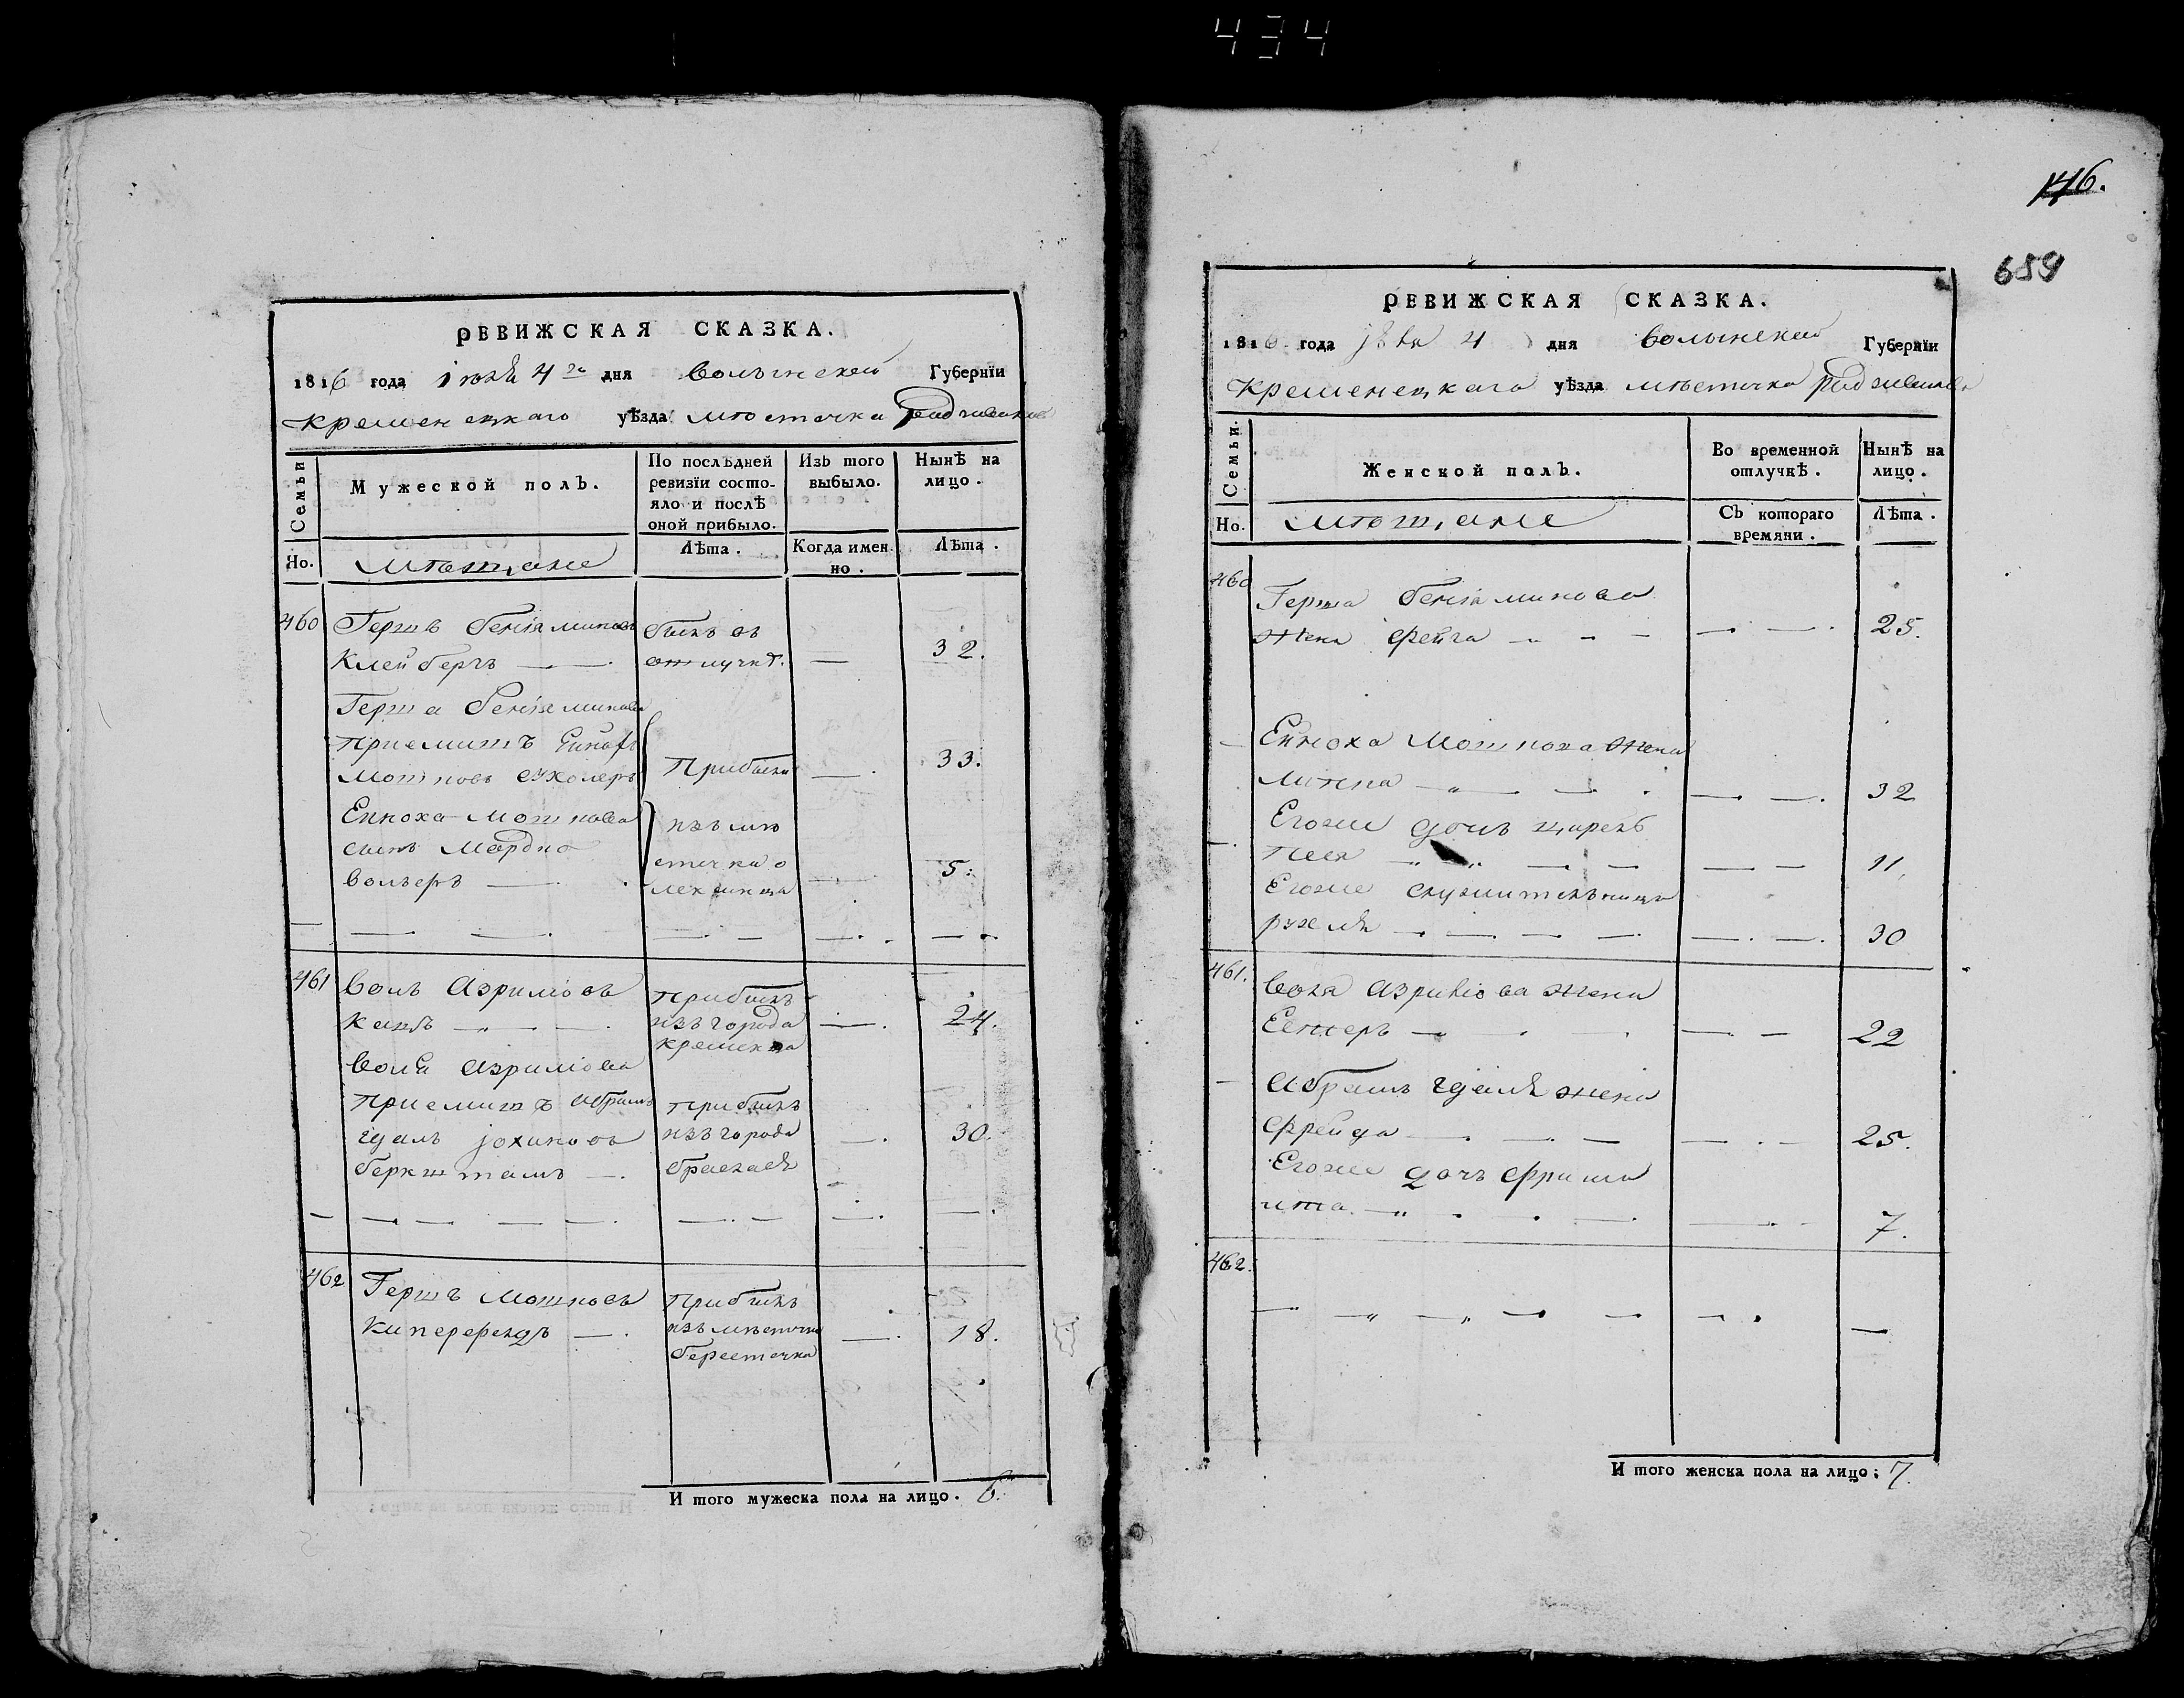 434
РЕВИЖСКАЯ СКАЗКА.
1816 года іюля 4го дня Волынской Губернїи
Кременецкаго уѣзда мѣстечка Радзивилова
Семьи
Мужеской полъ.
По послѣдней ревизїи состояло и послѣ оной прибыло.
Изъ того выбыло.
Нынѣ на лицо.
Но.
мѣщане
Лѣта.
Когда именно.
Лѣта.
460 Гершъ Беніяминовъ былъ въ
Клейберъ — отлучкѣ. — 32.
Герша Беніяминова
приемишъ
Мошковъ прибыли — 33.
Енноха Мошкова изъ мѣ
сынъ Мордко стечка о
Вольеръ — лексинца — 5.
461 Волъ Азриліовъ прибылъ
Канъ — изъ города — 24.
Кременца
Воля Азриліова
приемишъ Абрамъ прибылъ
Гдаль Іохиновъ изъ города — 30.
Беркштамъ —
462 Гершъ Мошковъ прибылъ
изъ мѣстечка — 18.
Берестечка
И того мужеска пола на лицо. 6.
146.
659
РЕВИЖСКАЯ СКАЗКА.
1816 года іюля 4 дня Волынской Губернїи
Кременецкаго уѣзда мѣстечка Радзивилова
Семьи.
Женской полъ.
Во временной отлучкѣ.
Нынѣ на лицо.
Но.
мѣщане
Съ котораго времяни.
Лѣта.
460 Герша Беніяминова
жена Фейга — — 25.
Енноха Мошкова жена
— — 32
Егоже дочь Цирель
Песя — — 11,
Егоже служительница
Рухля — — 30
461. Воля Азриліова жена
Естеръ — — 22
Абрамъ Гдаля жена
Фрейда — — 25.
Егоже дочь Фрима
Ита. — — 7.
462.
И того женска пола на лицо: 7.